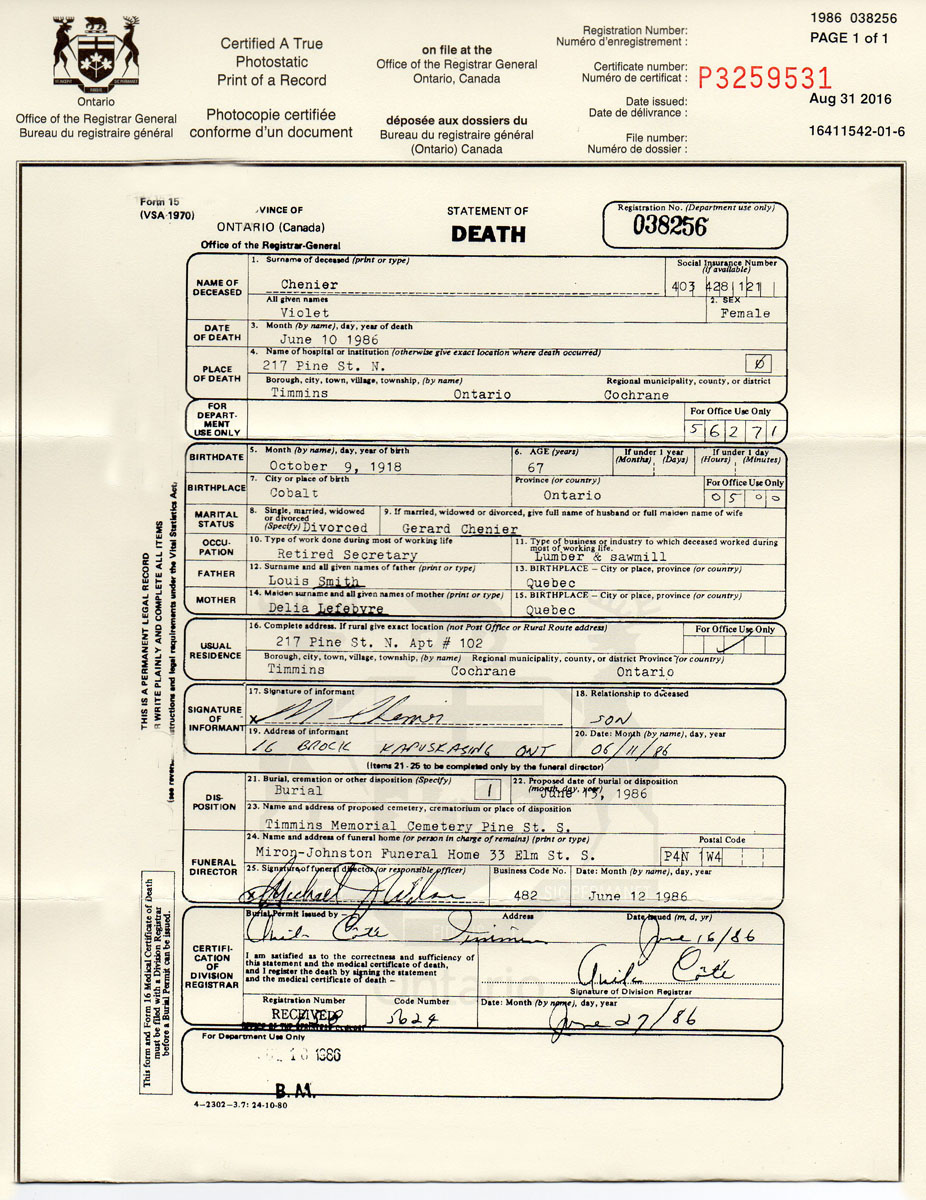 Ontario
Office of the Registrar General
Bureau du registraire général
Certified A True
Photostatic
Print of a Record
Photocopie certifiée
conforme d'un document
on file at the
Office of the Registrar General
Ontario, Canada
déposée aux dossiers du
Bureau du registraire général
(Ontario) Canada
Registration Number:
Numéro d'enregistrement :
1986 038256
PAGE 1 of 1
Certificate number:
Numéro de certificat :
P3259531
Date issued:
Date de délivrance :
Aug 31 2016
File number:
Numéro de dossier :
16411542-01-6
Form 15
(VSA-1970)
VINCE OF
ONTARIO (Canada)
Office of the Registrar-General
STATEMENT OF
DEATH
Registration No. (Department use only)
038256
NAME OF DECEASED
1. Surname of deceased (print or type)
Chenier
Social Insurance Number
(if available)
403 428 121
All given names
Violet
2. SEX
Female
DATE OF DEATH
3. Month (by name), day, year of death
June 10 1986
PLACE OF DEATH
4. Name of hospital or institution (otherwise give exact location where death occurred)
217 Pine St. N.
Borough, city, town, village, township, (by name) Regional municipality, county, or district
Timmins Ontario Cochrane
FOR DEPART-
MENT
USE ONLY
For Office Use Only
5 6 2 7 1
BIRTHDATE
5. Month (by name), day, year of birth
October 9, 1918
6. AGE (years)
67
If under 1 year
(Months) (Days)
If under 1 day
(Hours) (Minutes)
BIRTHPLACE
7. City or place of birth
Cobalt
Province (or country)
Ontario
For Office Use Only
0 5 0 0
MARITAL STATUS
8. Single, married, widowed
or divorced
(Specify) Divorced
9. If married, widowed or divorced, give full name of husband or full maiden name of wife
Gerard Chenier
OCCU-
PATION
10. Type of work done during most of working life
Retired Secretary
11. Type of business or industry to which deceased worked during
most of working life.
Lumber & sawmill
FATHER
12. Surname and all given names of father (print or type)
Louis Smith
13. BIRTHPLACE – City or place, province (or country)
Quebec
MOTHER
14. Maiden surname and all given names of mother (print or type)
Delia Lefebvre
15. BIRTHPLACE – City or place, province (or country)
Quebec
USUAL RESIDENCE
16. Complete address. If rural give exact location (not Post Office or Rural Route address)
217 Pine St. N. Apt # 102
For Office Use Only
Borough, city, town, village, township, (by name) Regional municipality, county, or district Province (or country)
Timmins Cochrane Ontario
SIGNATURE OF INFORMANT
17. Signature of informant
X M Chenier
18. Relationship to deceased
SON
19. Address of informant
16 BROCK KAPUSKASING ONT
20. Date: Month (by name), day, year
06/11/86
(Items 21-25 to be completed only by the funeral director)
DIS-
POSITION
21. Burial, cremation or other disposition (Specify)
Burial
1
22. Proposed date of burial or disposition
(month, day, year)
June 13, 1986
23. Name and address of proposed cemetery, crematorium or place of disposition
Timmins Memorial Cemetery Pine St. S.
FUNERAL DIRECTOR
24. Name and address of funeral home (or person in charge of remains) (print or type)
Miron-Johnston Funeral Home 33 Elm St. S.
Postal Code
P4N 1W4
25. Signature of funeral director (or responsible officer)
Michael
Business Code No.
482
Date: Month (by name), day, year
June 12 1986
CERTIFI-
CATION
OF
DIVISION
REGISTRAR
Burial Permit Issued by –
Address
Date issued (m, d, yr)
Cote Timmins June 16/86
I am satisfied as to the correctness and sufficiency of
this statement and the medical certificate of death,
and I register the death by signing the statement
and the medical certificate of death –
Cote
Signature of Division Registrar
Registration Number
RECEIVED
Code Number
5624
Date: Month (by name), day, year
June 27/86
For Department Use Only
10 1986
B.M.
4-2302-3.7: 24-10-80
THIS IS A PERMANENT LEGAL RECORD
WRITE PLAINLY AND COMPLETE ALL ITEMS
structions and legal requirements under the Vital Statistics Act.
(see reverse
This form and Form 16 Medical Certificate of Death
must be filed with a Division Registrar
before a Burial Permit can be issued.